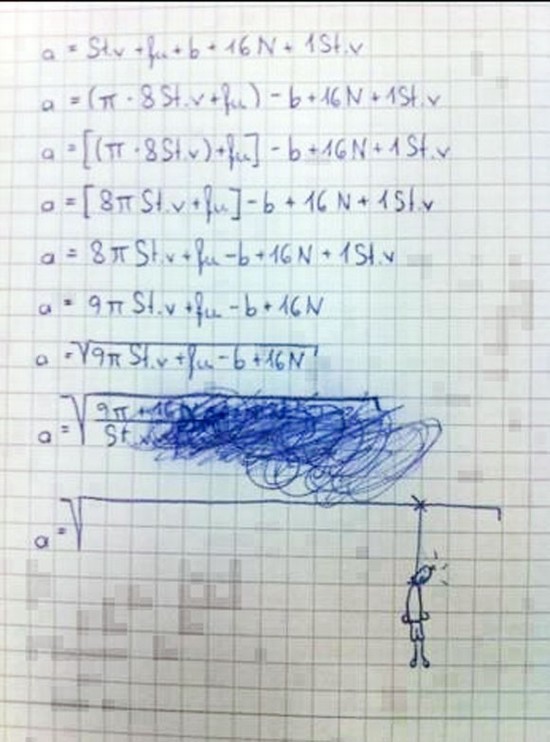 a = St.v + fu + b + 16 N + 1 St.v
a = (π · 8 St.v + fu) - b + 16 N + 1 St.v
a = [(π · 8 St.v) + fu] - b + 16 N + 1 St.v
a = [8π St.v + fu] - b + 16 N + 1 St.v
a = 8π St.v + fu - b + 16 N + 1 St.v
a = 9π St.v + fu - b + 16 N
a = √9π St.v + fu - b + 16 N
a = √9π + 16
St.
a = √